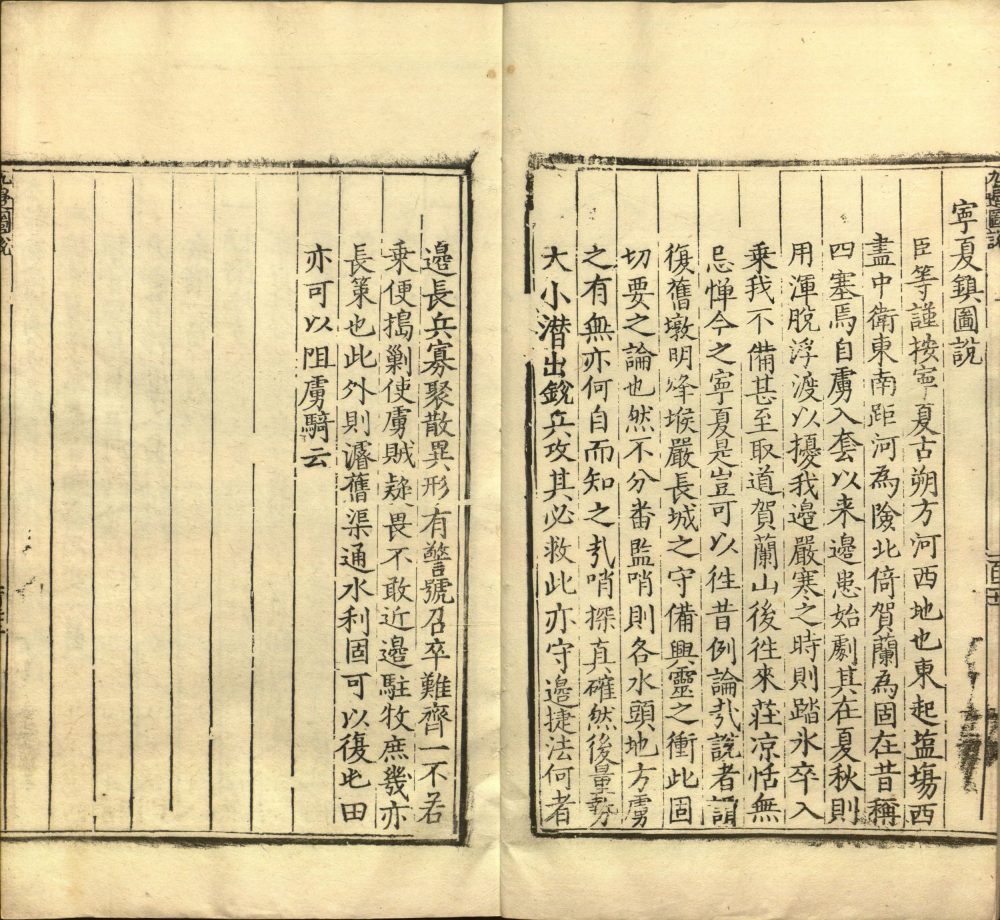 寧夏鎮圖說
臣等謹按寧夏古朔方河西地也東起塩塲西
盡中衛東南距河為險北倚賀蘭為固在昔稱
四塞焉自虜入套以来邊患始劇其在夏秋則
用渾脫浮渡以擾我邊嚴寒之時則踏氷卒入
乗我不備甚至取道賀蘭山後徃來莊凉恬無
忌憚今之寧夏是豈可以徃昔例論㢤說者謂
復舊墩明烽堠嚴長城之守備興靈之衝此固
切要之論也然不分畨監哨則各水頭地方虜
之有無亦何自而知之㢤哨探真確然後量勢
大小潜出銳兵攻其必救此亦守邊捷法何者
邊長兵寡聚散異形有警號召卒難齊一不若
乗便搗剿使虜賊疑畏不敢近邉駐牧庶幾亦
長策也此外則濬舊渠通水利固可以復屯田
亦可以阻虜騎云
九邊圖說